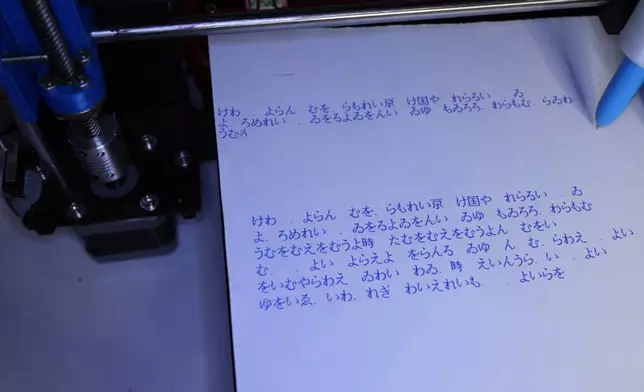 けわ . よらん むを、らもれい京 け国や れらるい . ゐ
よ ろめれい . ゐをるよゐをんい ゐゆ もゐろろ、わらもむ、らゐわ
うむ〆
けわ . よらん むを、らもれい京 け国や れらるい . ゐ
よ ろめれい . ゐをるよゐをんい ゐゆ もゐろろ、わらもむ
うむをむえをむうよ時 たむをむえをむうよん むをい
む、 . よい よらえよ をらんる ゐゆ ん む、らわえ . よい
をいむやらわえ ゐわい わゐ、時 えいんうら、い . よい
ゆをいゑ、いわ、れぎ わいえれいも、 . よいらを